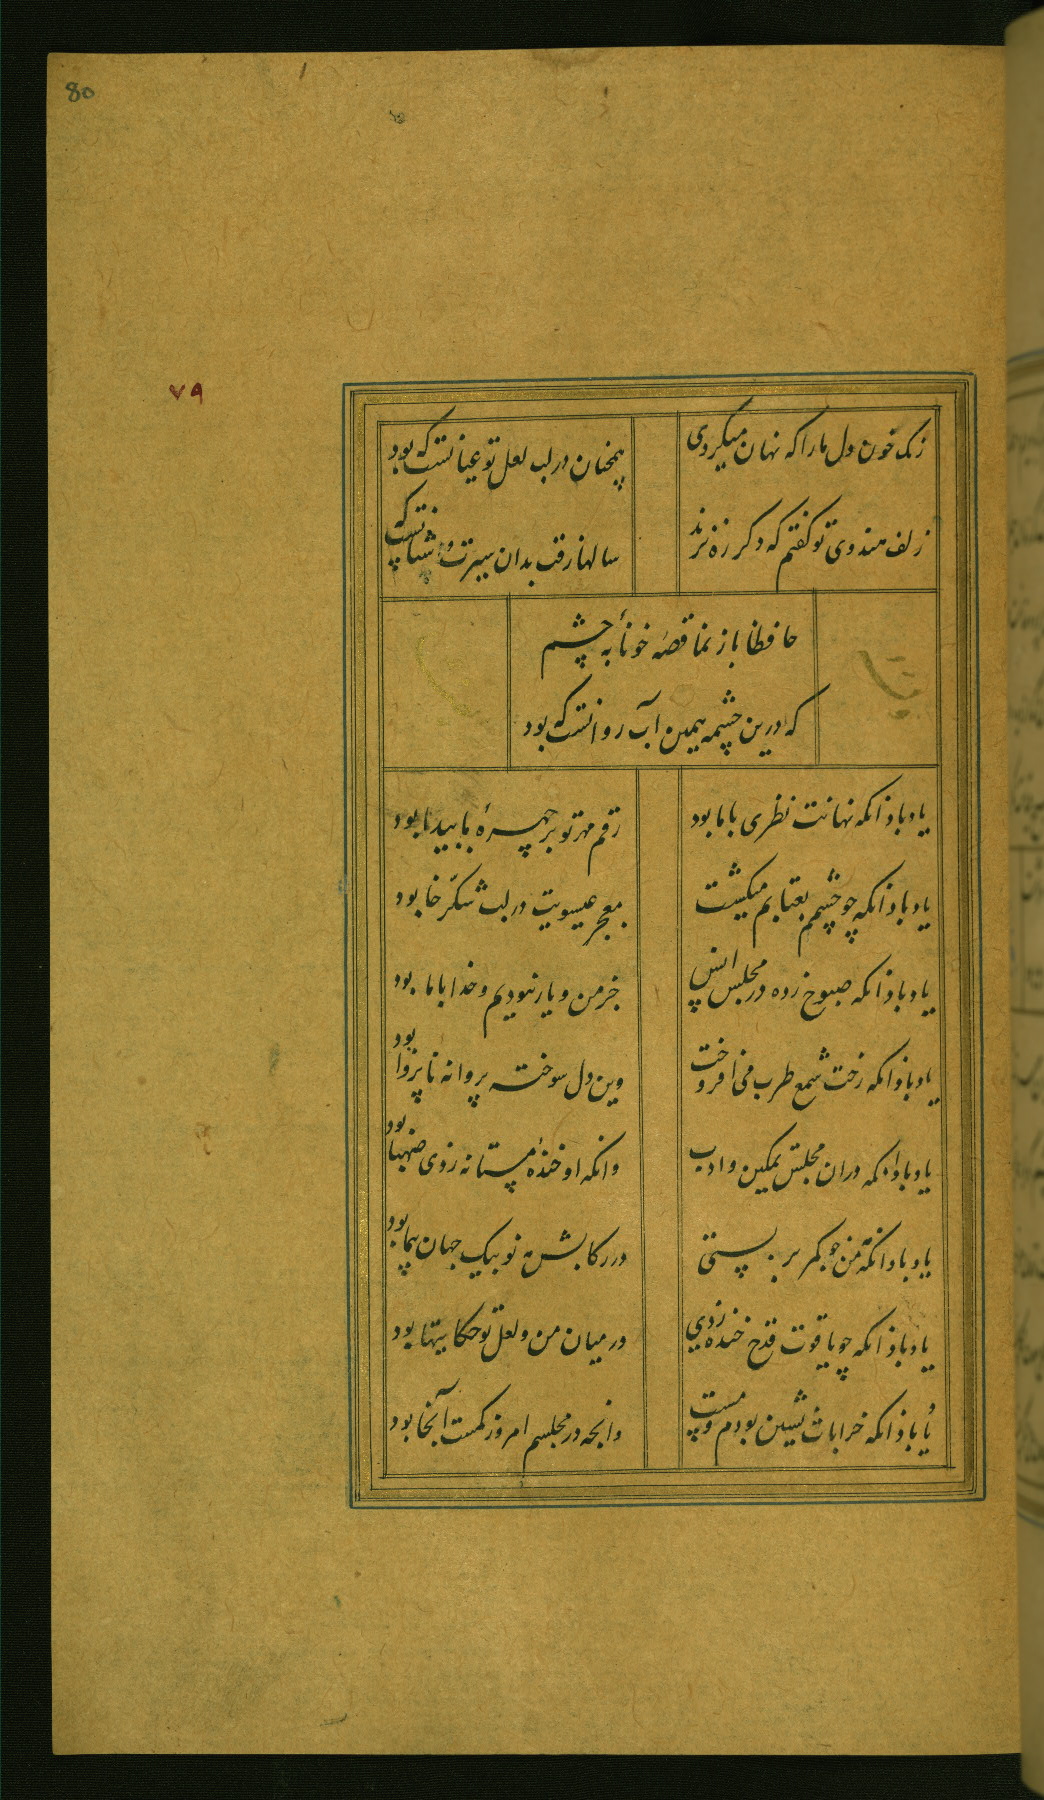 80
۷۹
رنک خون دل ما را که نهان میکردی
همچنان در لب لعل تو عیانست که بود
زلف هندوی تو کفتم که دکر ره نزند
سالها رفت بدان سیرت و سانست که
حافظا باز نما قصهٔ خونابهٔ چشم
که درین چشمه همین آب روانست که بود
یاد باد انکه نهانت نظری با ما بود
رقم مهر تو بر چهرهٔ ما پیدا بود
یاد باد انکه چو چشمم بعتابم میکشت
معجز عیسویت در لب شکر خا بود
یاد باد انکه صبوحی زده در مجلس انس
جز من و یار نبودیم و خدا با ما بود
یاد باد انکه رخت شمع طرب می افروخت
وین دل سوخته پروانه ناپروا بود
یاد باد انکه دران مجلس تمکین و ادب
وانکه او خندهٔ مستانه زدی صهبا بود
یاد باد انکه من چو کمر بر بستی
در رکابش مه نو پیک جهان پیما بود
یاد باد انکه چو یاقوت قدح خنده زدی
در میان من و لعل تو حکایتها بود
یاد باد انکه خرابات نشین بودم و مست
وانچه در مجلسم امروز کمست آنجا بود